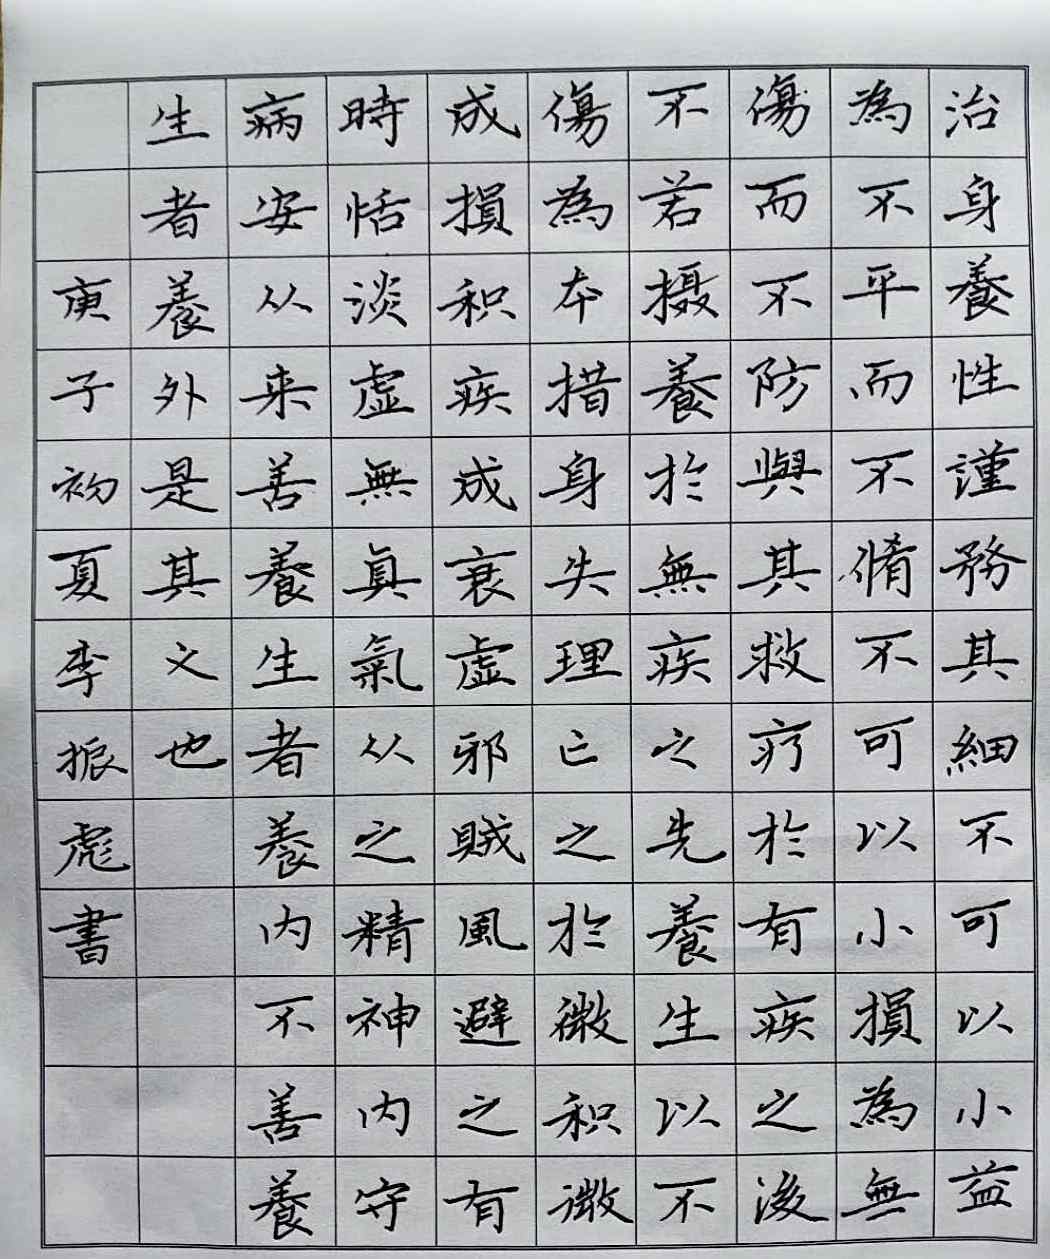 治身養性謹務其細不可以小益
為不平而不脩不可以小損為無
傷而不防與其救疗於有疾之後
不若摄養於無疾之先養生以不
傷為本措身失理亡之於微积微
成損积疾成衰虚邪賊風避之有
時恬淡虚無真氣从之精神内守
病安从来善養生者養内不善養
生者養外是其义也
庚子初夏李振彪書